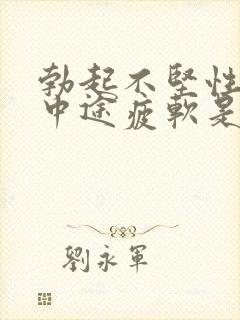 勃起不坚性
中途疲軟是
劉永軍